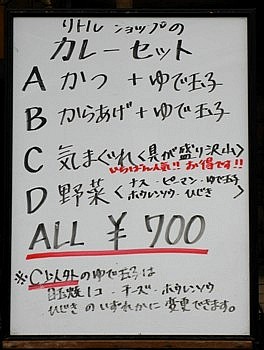 リトルショップの
カレーセット
A かつ + ゆで玉子
B からあげ + ゆで玉子
C 気まぐれ〈具が盛り沢山〉
いちばん人気!! お得です!!
D 野菜〈ナス - ピーマン - ゆで玉子
ホウレンソウ - ひじき〉
ALL ¥700
※C以外のゆで玉子は
目玉焼1コ - チーズ - ホウレンソウ
ひじきのいずれかに変更できます。